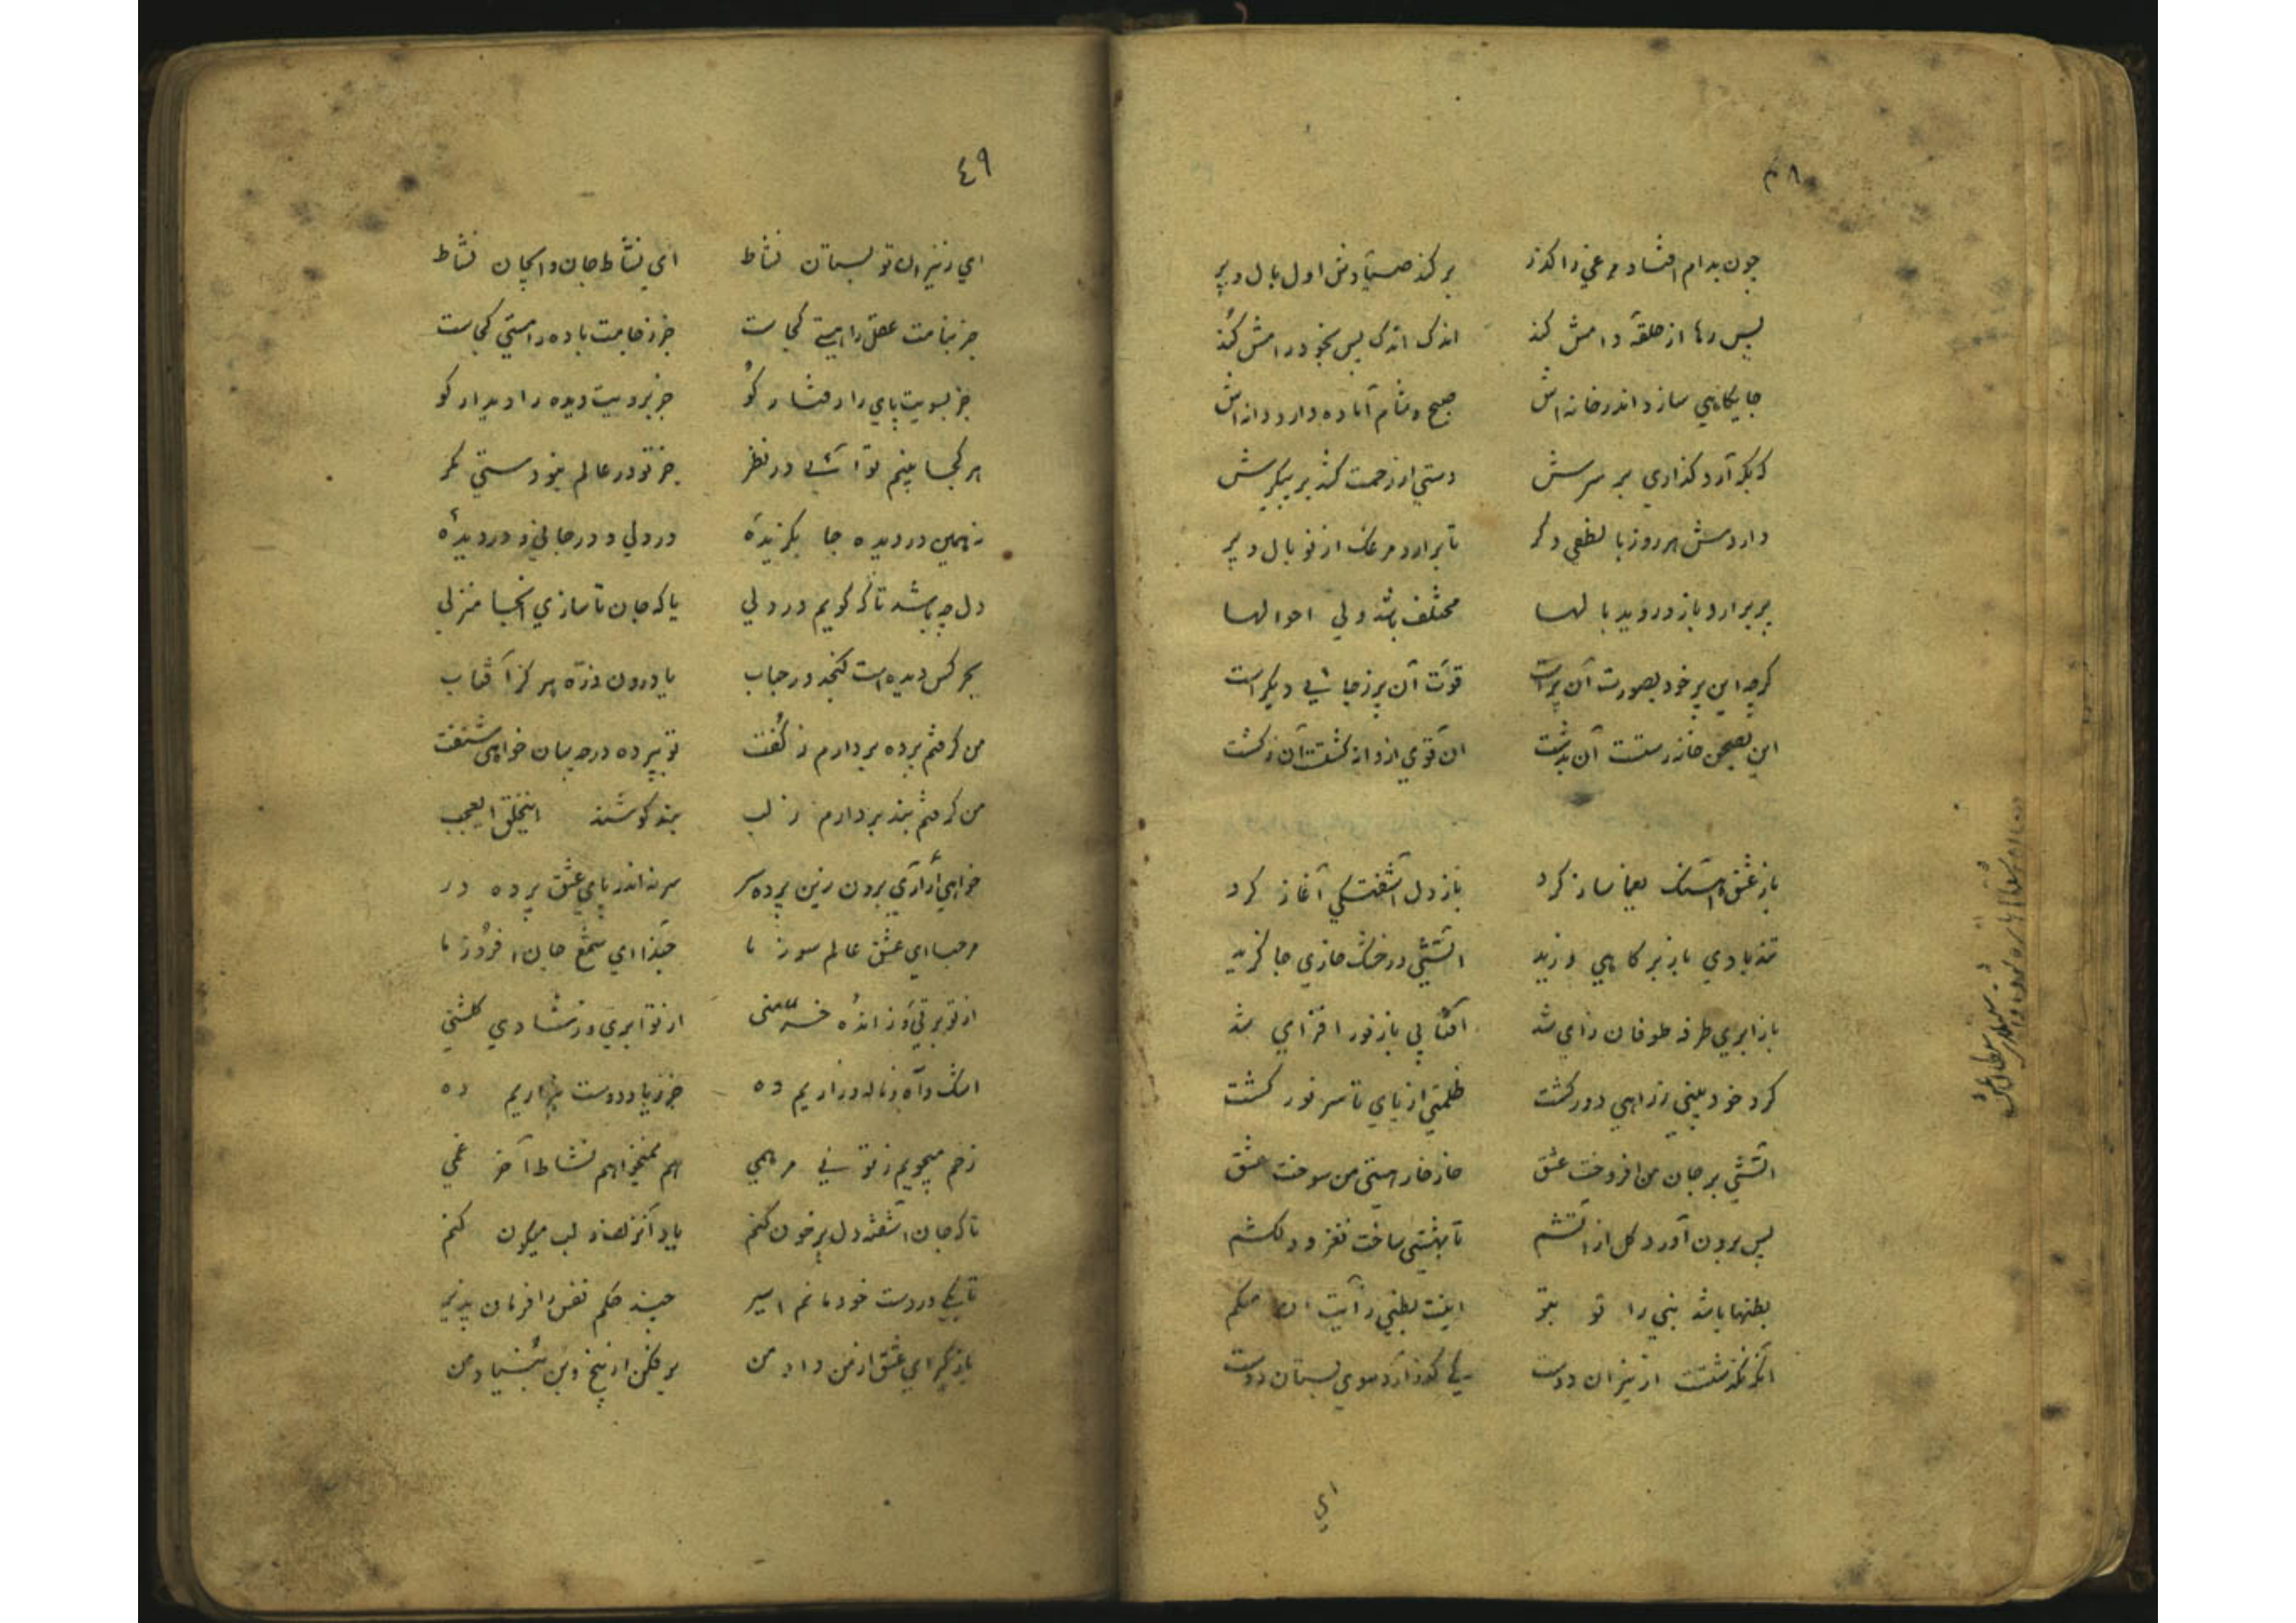 ۴۸
چون بدام افتاد مرغی را کذر برکند صیّادش اول بال و پر
پس رها از حلقهٔ دامش کند اندک اندک پس بخود رامش کند
جایکاهی سازد اندر خانه‌اش صبح و شام آماده دارد دانه‌اش
که بکر آرد کذاری بر سرش دستی از رحمت کشد بر پیکرش
داردش هر روز با لطفی دکر تا برارد مرغک از نو بال و پر
پر برارد باز و روید بالها مختلف باشد ولی احوالها
کرچه این پر خود بصورت آن پر است قوّت آن پر ز جائی دیکر است
این بصحن خانه رست آن بدشت آن قوی از دانه کشت آن ز کشت
باز عشق آهنک یغما ساز کرد باز دل آشفتکی آغاز کرد
تند بادی باز بر کاهی وزید آتشی در خشک خاری جا کزید
باز ابری طرفه طوفان زای شد آفتابی باز نور افزای شد
کرد خود بینی ز راهی دور کشت ظلمتی از پای تا سر نور کشت
آتشی بر جان من افروخت عشق خار خار هستی من سوخت عشق
پس برون آورد کل از آتشم تا بهشتی ساخت نغز و دلکشم
بطنها باشد نبی را تو بتو اینت بطنی ز آیت ان منکم
آنکه نکذشت از نیران دوست کی کذر آرد سوی بستان دوست
ای
۴۹
ای ز نیران تو بستان نشاط ای نشاط جان و ای جان نشاط
جز بنامت عقل را هستی کجاست جز ز جامت باده را مستی کجاست
جز بسویت پای را رفتار کو جز برویت دیده را دیدار کو
هر کجا بینم تو آئی در نظر جز تو در عالم نبودستی مکر
نه همین در دیده جا بکزیدهٔ در دلی و در جانی و در دیدهٔ
دل چه باشد تا که کویم در دلی یا که جان تا سازی آنجا منزلی
بحر کس دیده است کنجد در حباب یا درون ذرّه هرکز آفتاب
من کرفتم پرده بردارم ز کفت تو بپرده در چسان خواهی شنفت
من کرفتم بند بردارم ز لب بند کوشند اینخلق ایعجب
خواهی ار آری برون زین پرده سر سر نه اندر پای عشق پرده در
مرحبا ای عشق عالم سوز ما حبّذا ای شمع جان افروز ما
از تو برقی وز انده خرمنی از تو ابری وز شادی کلشنی
اشک و آه و ناله و زاریم ده جز ز یاد دوست بیزاریم ده
زخم میجویم ز تو نی مرهمی هم نمیخواهم نشاط آخر غمی
تا که جان آشفته دل پرخون کنم یاد آنزلف و لب میکون کنم
تا بکی در دست خود مانم اسیر چند حکم نفس را فرمان پذیر
باز کیر ای عشق از من داد من بر فکن از بیخ و بن بنیاد من